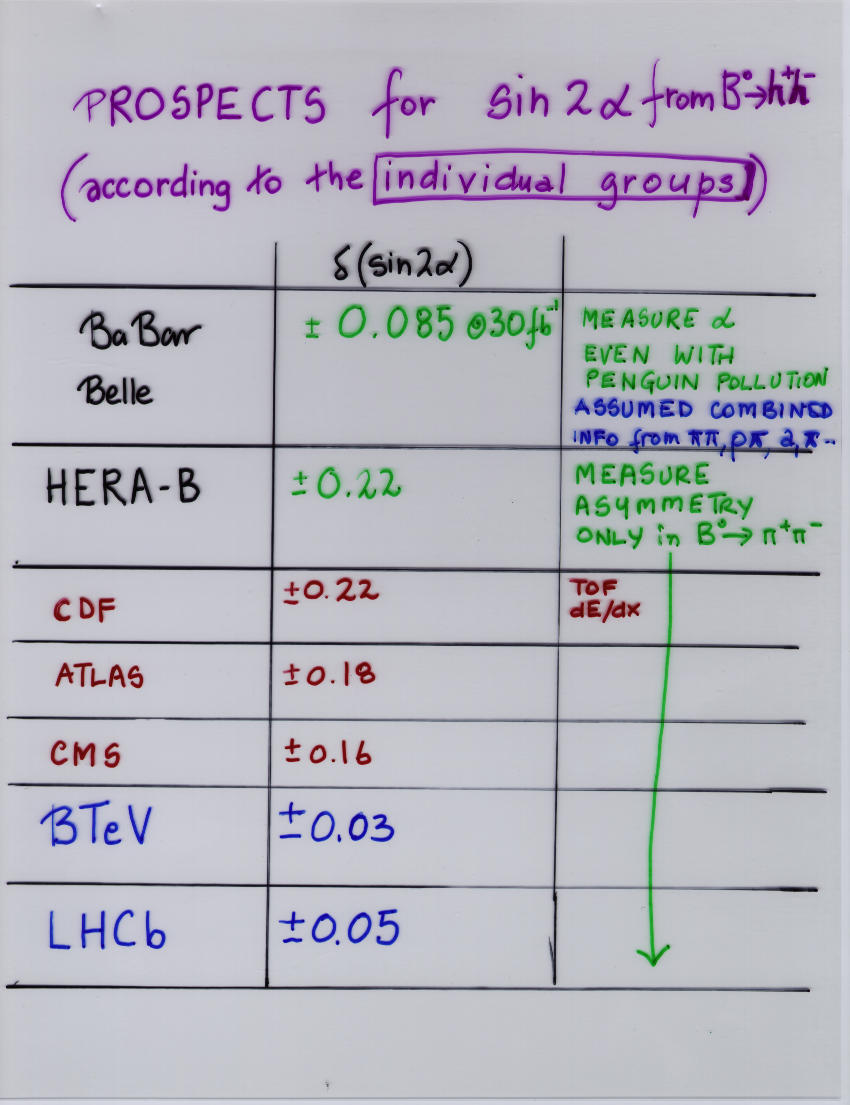 PROSPECTS for sin 2α from B°→h⁺h⁻
(according to the individual groups)
δ(sin2α)
BaBar ± 0.085 @30fb⁻¹ MEASURE α
EVEN WITH
Belle PENGUIN POLLUTION
ASSUMED COMBINED
INFO from ππ, ρπ, a,π..
HERA-B ±0.22 MEASURE
ASYMMETRY
ONLY in B°→ π⁺π⁻
CDF ±0.22 TOF
dE/dx
ATLAS ±0.18
CMS ±0.16
BTeV ±0.03
LHCb ±0.05